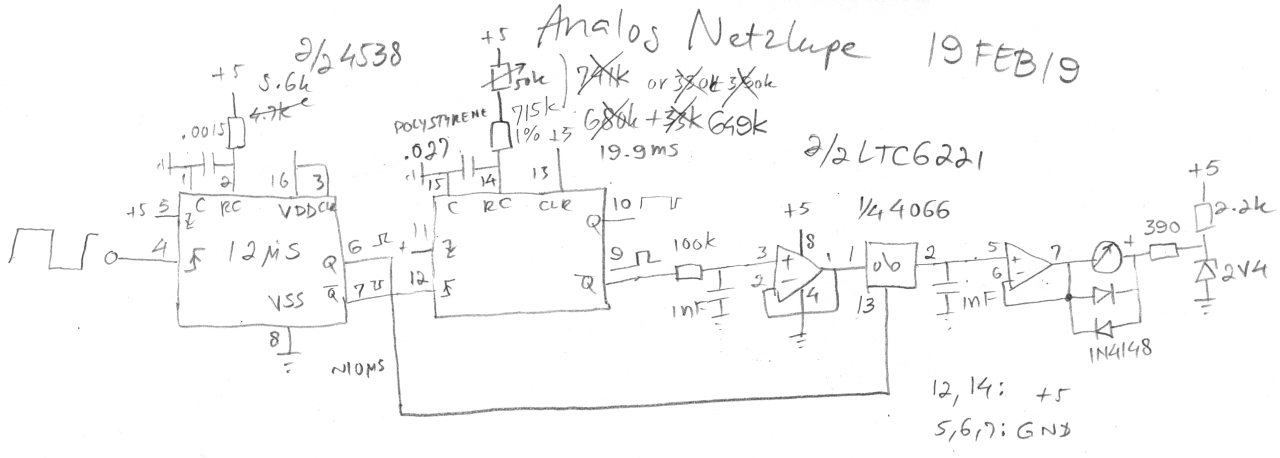 Analog Netzlupe 19FEB19
2/2 4538
+5
5.6k
4.7k
.0015
1
2
16
3
C RC VDD CLR
+5 5
4
12µS
VSS
Q 6
Q 7
8
~10mS
+5
50k
741k or 330k+330k
715k
1%
680k+33k 649k
19.9ms
POLYSTYRENE
.027
+5
15
14
13
C RC CLR
+ 11
12
Q 10
Q 9
100k
1nF
2/2 LTC6221
+5
3
8
2
4
1
1/4 4066
1
2
13
1nF
5
6
7
+
390
+5
2.2k
2V4
1N4148
12, 14: +5
5,6,7: GND